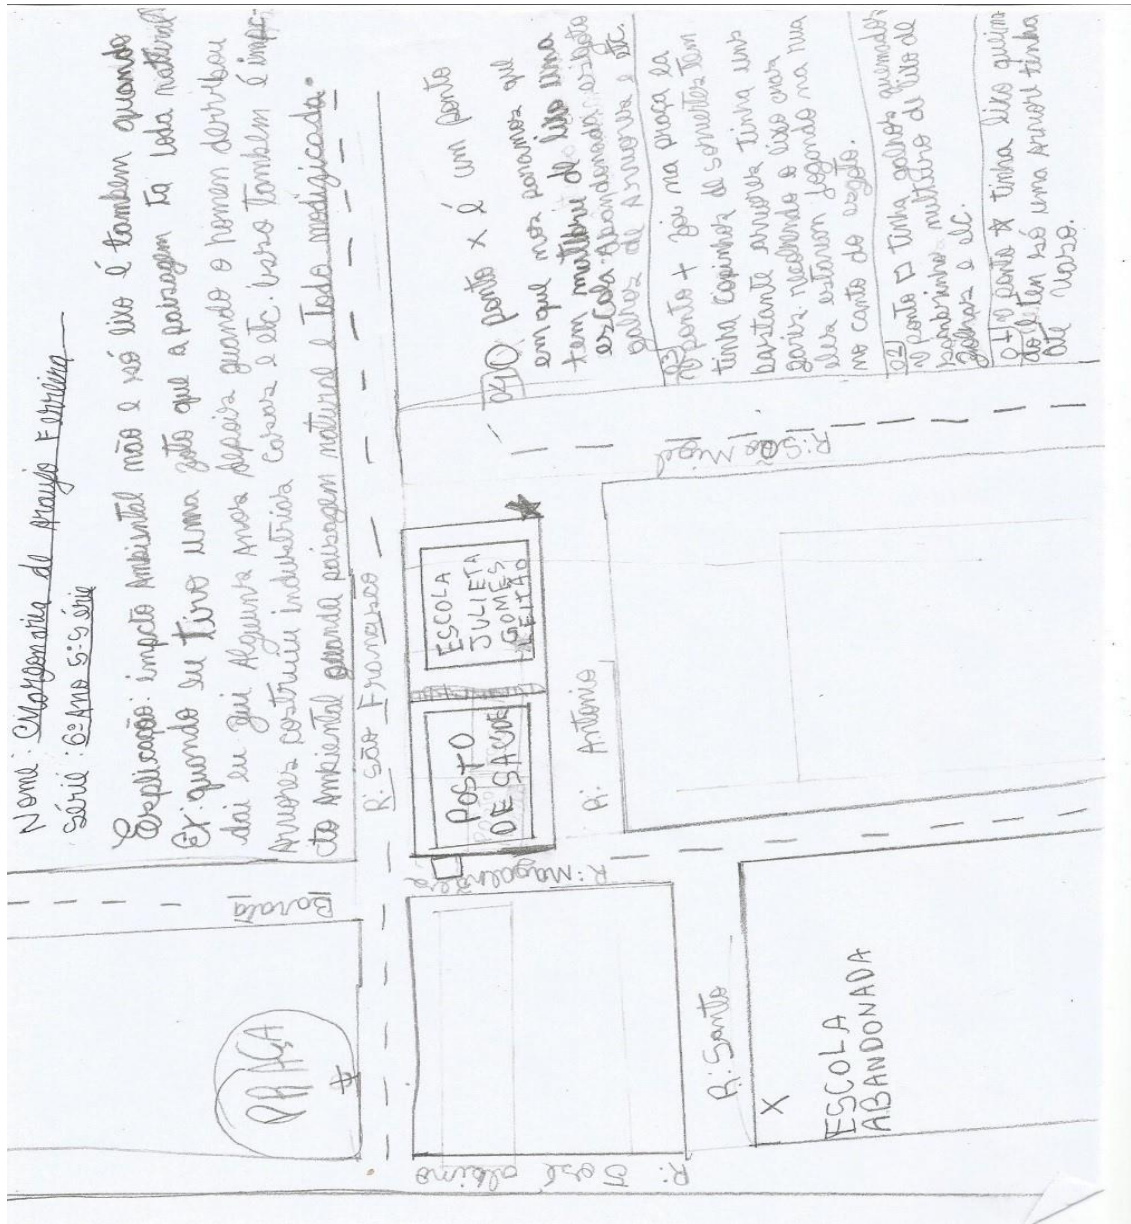 Nome: Margonaria de Araujo Ferreira
Série: 6º Ano 5ª Série
Explicação: impacto Ambiental não e só lixo é tambem quando
Ex: quando eu tiro uma foto que a paisagem ta toda natural
dai eu fui Alguns Anos depois quando o homem derrubou
Arvores costruiu industrias casas e etc. isso tambem é impac-
to Ambiental quando paisagem natural e Todo modificada.
R: são Francisco
Barata
PRAÇA
R: José albino
R: Magalhães
POSTO
DE SAÚDE
ESCOLA
JULIETA
GOMES
LEITÃO
R: Antonio
R: São Migel
R: Santo
X
ESCOLA
ABANDONADA
04) O ponto x é um ponto
em que nós paramos que
tem muito de lixo uma
escola abandonada, esgoto
galhos de Arvores e etc.
03)
O ponto + foi na praça la
tinha copinhos de sorvertes tem
bastante arvores tinha uns
garis recolhendo o lixo mas
eles estavam jogando na rua
no canto do esgoto.
02)
O ponto □ tinha galhos quemados
de lixo de
e etc.
01) O ponto ☆ tinha lixo queima
do, tem só uma Arvore tinha
até vaso.